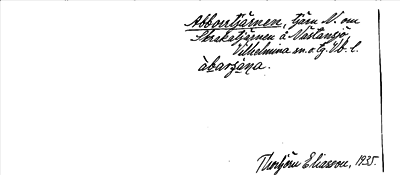 Abborrtjärnen, tjärn N. om
Skrakatjärnen å Västansjö,
Vilhelmina sn. o. tg. Vb. l.
àbarṣàṇa.
Thorbjörn Eliasson, 1935.